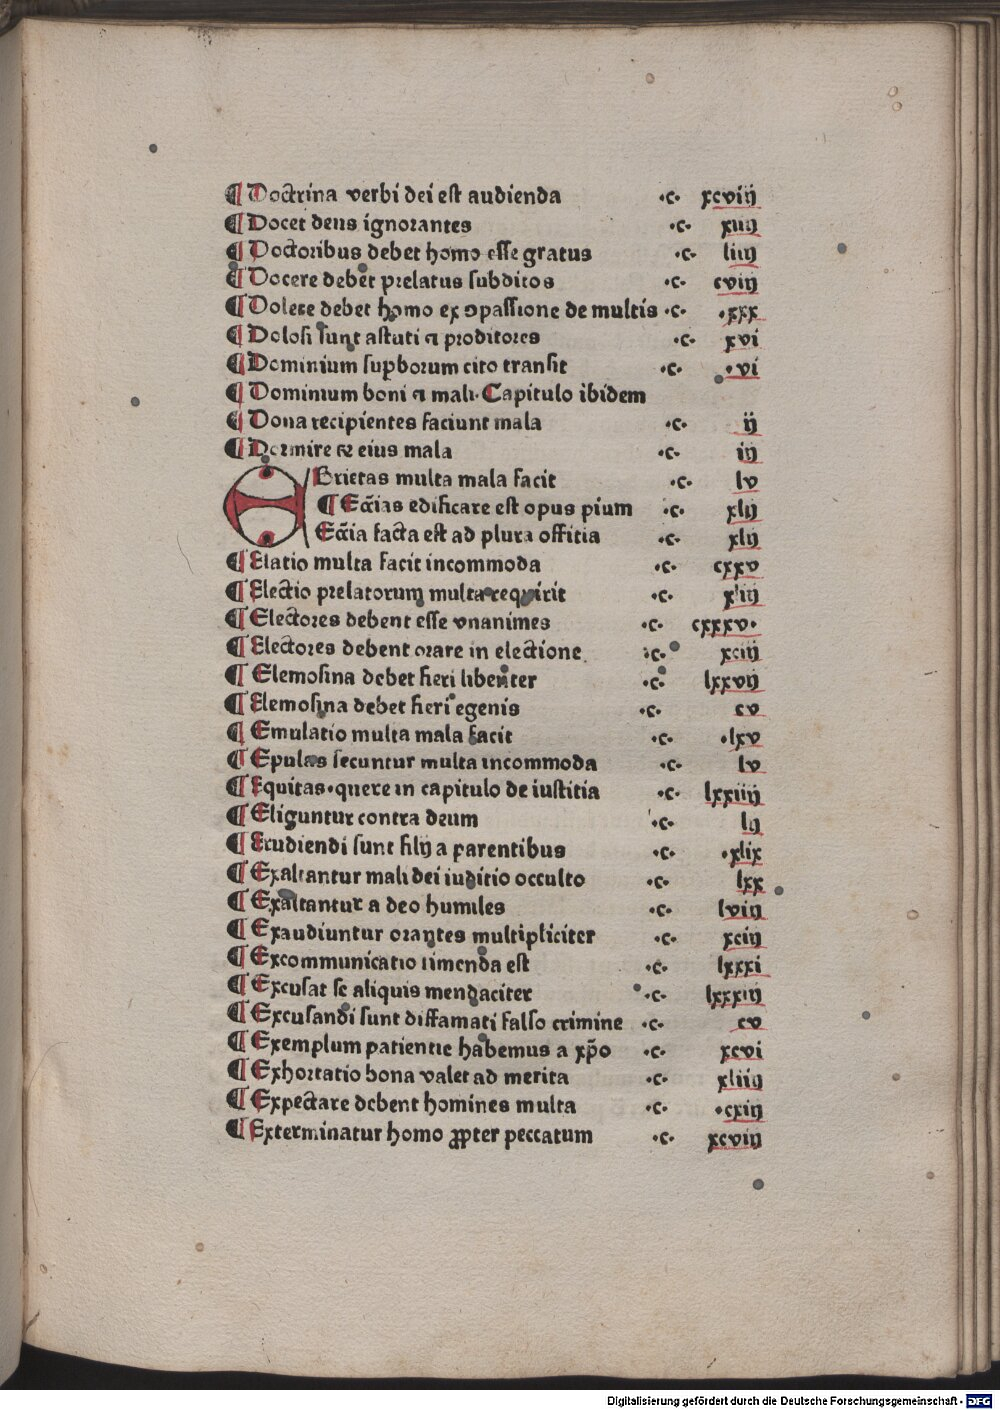 ¶ Doctrina verbi dei est audienda ·c· xcviij
¶ Docet deus ignorantes ·c· xiiij
¶ Doctoribus debet homo esse gratus ·c· liiij
¶ Docere debet prelatus subditos ·c· cviij
¶ Dolere debet homo ex ↄpassione de multis ·c· ·xxx
¶ Dolosi sunt astuti ⁊ proditores ·c· xvi
¶ Dominium suꝑborum cito transit ·c· ·vi
¶ Dominium boni ⁊ mali· Capitulo ibidem
¶ Dona recipientes faciunt mala ·c· ij
¶ Dormire ⁊ eius mala ·c· iij
EBrietas multa mala facit ·c· lv
¶ Ecc̃ias edificare est opus pium ·c· xlij
Ecc̃ia facta est ad plura offitia ·c· xlij
¶ Elatio multa facit incommoda ·c· cxxv
¶ Electio prelatorum multa requirit ·c· xliij
¶ Electores debent esse vnanimes ·c· cxxxv·
¶ Electores debent orare in electione ·c· xciij
¶ Elemosina debet fieri libenter ·c· lxxvij
¶ Elemosina debet fieri egenis ·c· cv
¶ Emulatio multa mala facit ·c· ·lxv
¶ Epulas secuntur multa incommoda ·c· lv
¶ Equitas·quere in capitulo de iustitia ·c· lxxiiij
¶ Eliguntur contra deum ·c· lij
¶ Erudiendi sunt filij a parentibus ·c· ·xlix
¶ Exaltantur mali dei iuditio occulto ·c· lxx
¶ Exaltantur a deo humiles ·c· lviij
¶ Exaudiuntur orantes multipliciter ·c· xciij
¶ Excommunicatio timenda est ·c· lxxxi
¶ Excusat se aliquis mendaciter ·c· lxxxiij
¶ Excusandi sunt diffamati falso crimine ·c· cv
¶ Exemplum patientie habemus a xp̃o ·c· xcvi
¶ Exhortatio bona valet ad merita ·c· xliiij
¶ Expectare debent homines multa ·c· ·cxiij
¶ Exterminatur homo ꝓpter peccatum ·c· xcviij
Digitalisierung gefördert durch die Deutsche Forschungsgemeinschaft · DFG